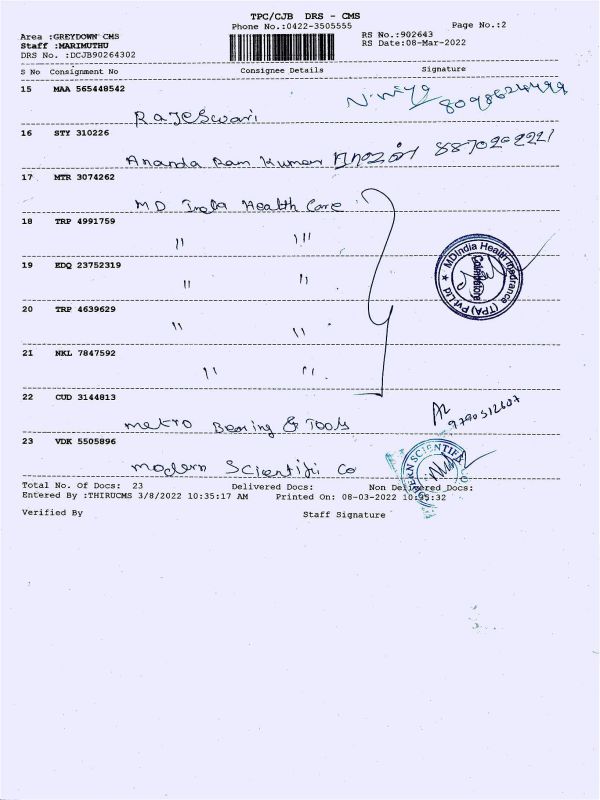 TPC/CJB DRS - CMS
Phone No.:0422-3505555 Page No.:2
Area :GREYDOWN CMS RS No.:902643
Staff :MARIMUTHU RS Date:08-Mar-2022
DRS No. :DCJB90264302
S No Consignment No Consignee Details Signature
15 MAA 565448542
Rajeswari
16 STY 310226
Ananda Ram Kumar
17 MTR 3074262
MD India Health Care
18 TRP 4991759
" "
19 EDQ 23752319
" "
20 TRP 4639629
" "
21 NKL 7847592
" "
MDIndia Health Insurance (TPA) Pvt Ltd
Coimbatore
22 CUD 3144813
9790312607
Metro Bearing & Tools
23 VDK 5505896
Modern Scientific Co
Total No. Of Docs: 23 Delivered Docs: Non Delivered Docs:
Entered By :THIRUCMS 3/8/2022 10:35:17 AM Printed On: 08-03-2022 10:35:32
Verified By Staff Signature